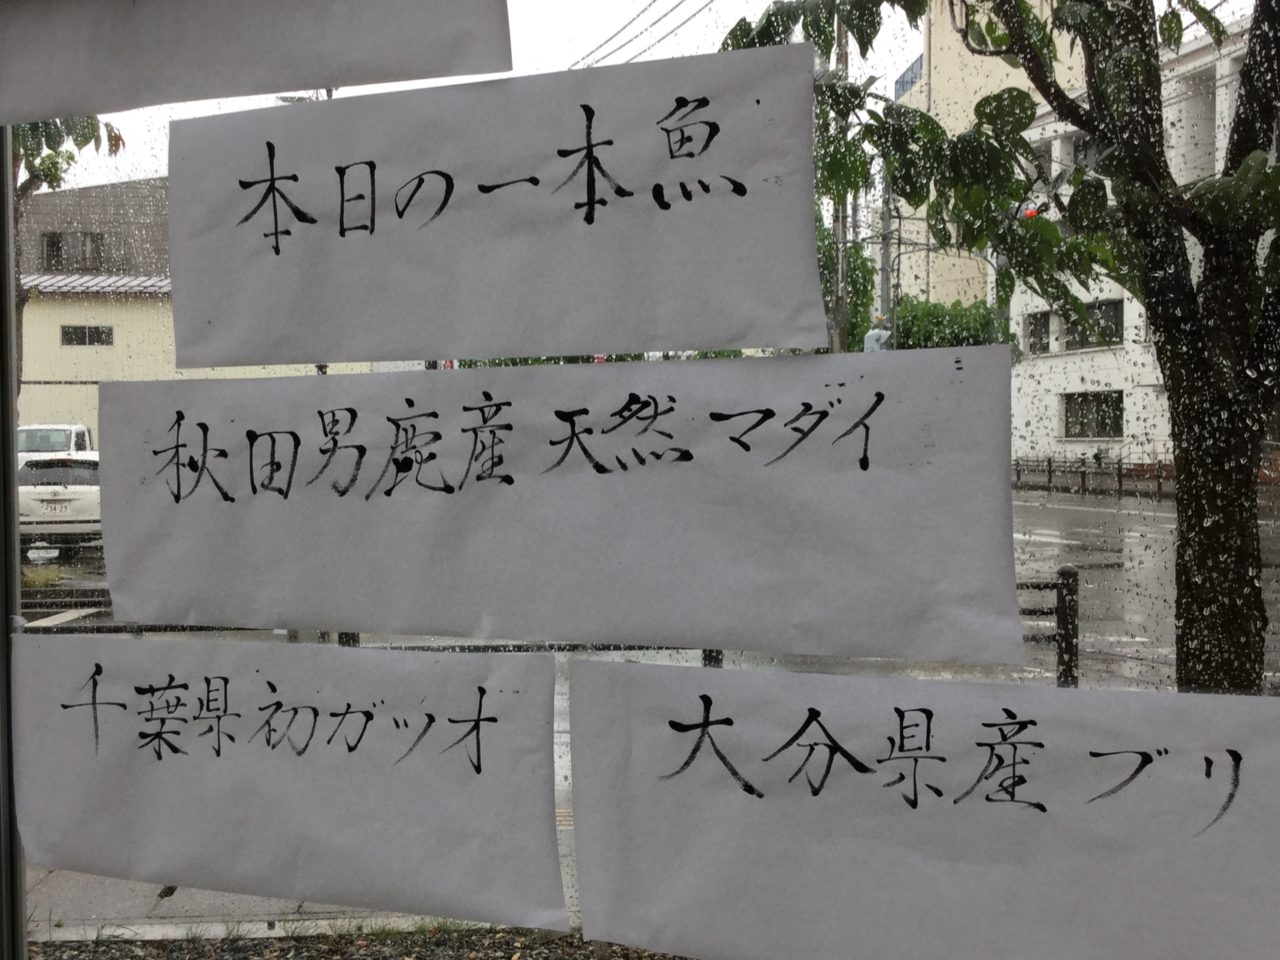 本日の一本魚
秋田男鹿産天然マダイ
千葉県初ガツオ
大分県産ブリ
34-29